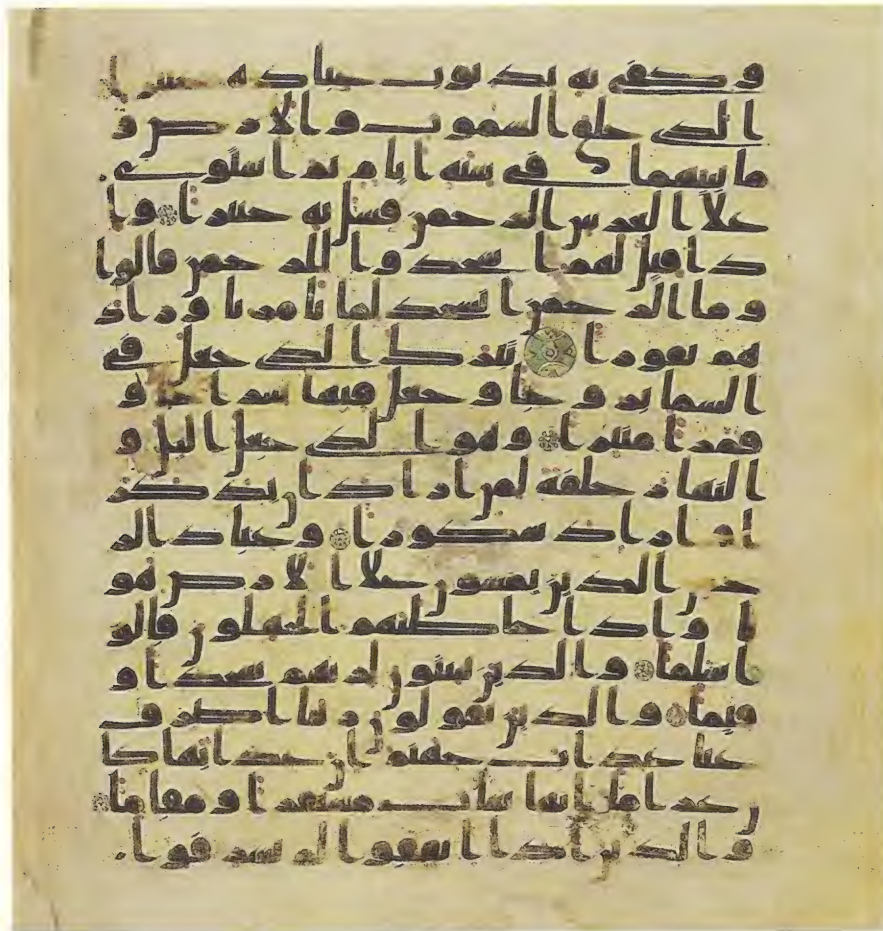 وكفى به بذنوب عباده خبيرا
الذي خلق السموت والارض و
ما بينهما في ستة ايام ثم استوى
علا العرش الرحمن فسل به خبيرا وا
ذا قيل لهم اسجدوا للرحمن قالوا
وما الرحمن انسجد لما تامرنا وزاد
هم نفورا تبرك الذي جعل في
السما بروجا وجعل فيها سرجا و
قمرا منيرا وهو الذي جعل اليل و
النهار خلفة لمن اراد ان يذكر
او اراد شكورا وعباد الر
حمن الذين يمشون علا الارض هو
نا واذا خاطبهم الجهلون قالو
ا سلما والذين يبيتون لربهم سجدا و
قيما والذين يقولون ربنا اصرف
عنا عذاب جهنم ان عذابها كا
ن غراما انها سات مستقرا ومقاما
والذين اذا انفقوا لم يسرفوا